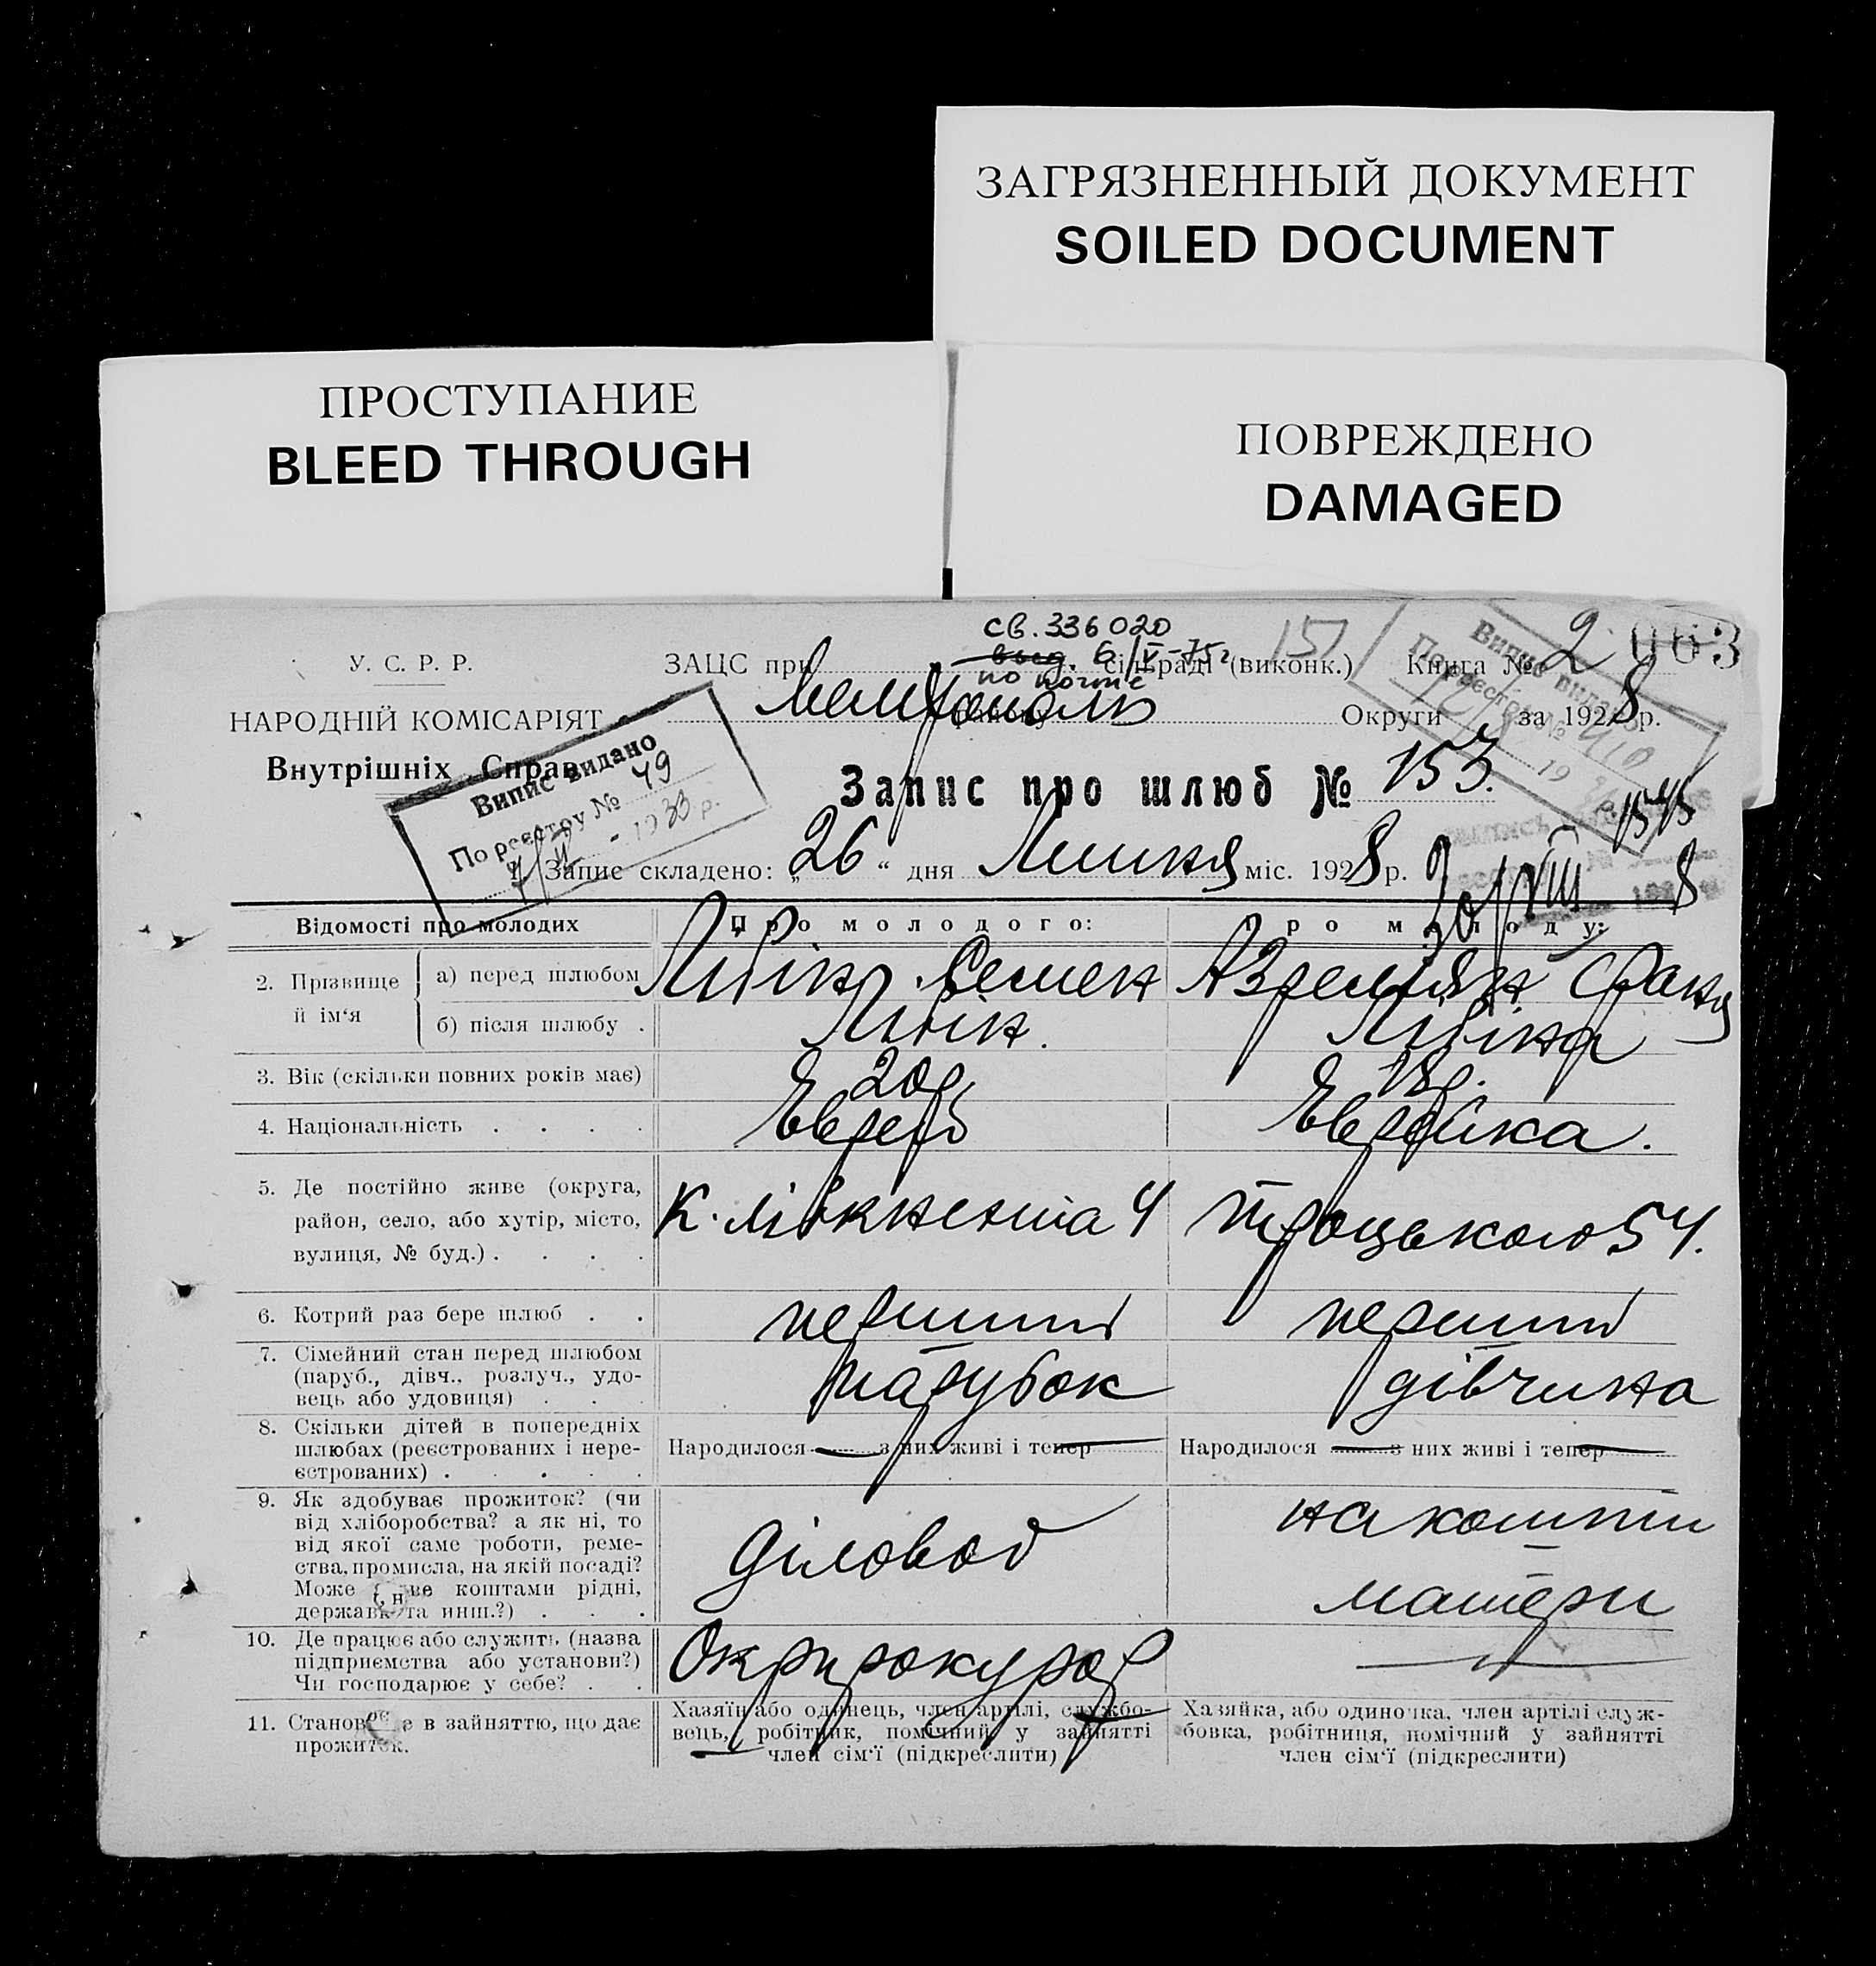 ЗАГРЯЗНЕННЫЙ ДОКУМЕНТ
SOILED DOCUMENT
ПРОСТУПАНИЕ
BLEED THROUGH
ПОВРЕЖДЕНО
DAMAGED
св. 336020
6/V-75 г.
по почте
151
063
У. С. Р. Р.
ЗАЦС при сільраді (виконк.) Книга № 2
НАРОДНІЙ КОМІСАРІЯТ
Мелітополь Округи за 1928 р.
Внутрішніх Справ
Випис видано
По реєстру № 49
1933 р.
Випис видано
По реєстру № 410
19
Запис про шлюб № 153.
1545
1. Запис складено: „26“ дня Липня міс. 1928 р.
30/VIII 8
Відомості про молодих Про молодого: Про молоду:
2. Прізвище й ім‘я а) перед шлюбом Семен
б) після шлюбу .
3. Вік (скільки повних років має) 20 р. 18 р.
4. Національність . . . . Еврей Еврейка.
5. Де постійно живе (округа,
район, село, або хутір, місто,
вулиця, № буд.) . . . . К. Лібкнехта 4 Троцького 54.
6. Котрий раз бере шлюб . . перший перший
7. Сімейний стан перед шлюбом
(паруб., дівч., розлуч., удо-
вець або удовиця) . . . парубок дівчина
8. Скільки дітей в попередніх
шлюбах (реєстрованих і нере-
єстрованих) . . . . . Народилося з них живі і тепер Народилося з них живі і тепер
9. Як здобуває прожиток? (чи
від хліборобства? а як ні, то
від якої саме роботи, реме-
ства, промисла, на якій посаді?
Може коштами рідні,
держави та инш.?) . . . діловод на кошти
матери
10. Де працює або служить (назва
підприємства або установи?)
Чи господарює у себе? . . Окрпрокурор
11. Становище в зайняттю, що дає
прожиток.
Хазяїн або одинець, член артілі, службо-
вець, робітник, помічний у зайнятті
член сім‘ї (підкреслити)
Хазяйка, або одиночка, член артілі служ-
бовка, робітниця, помічний у зайнятті
член сім‘ї (підкреслити)